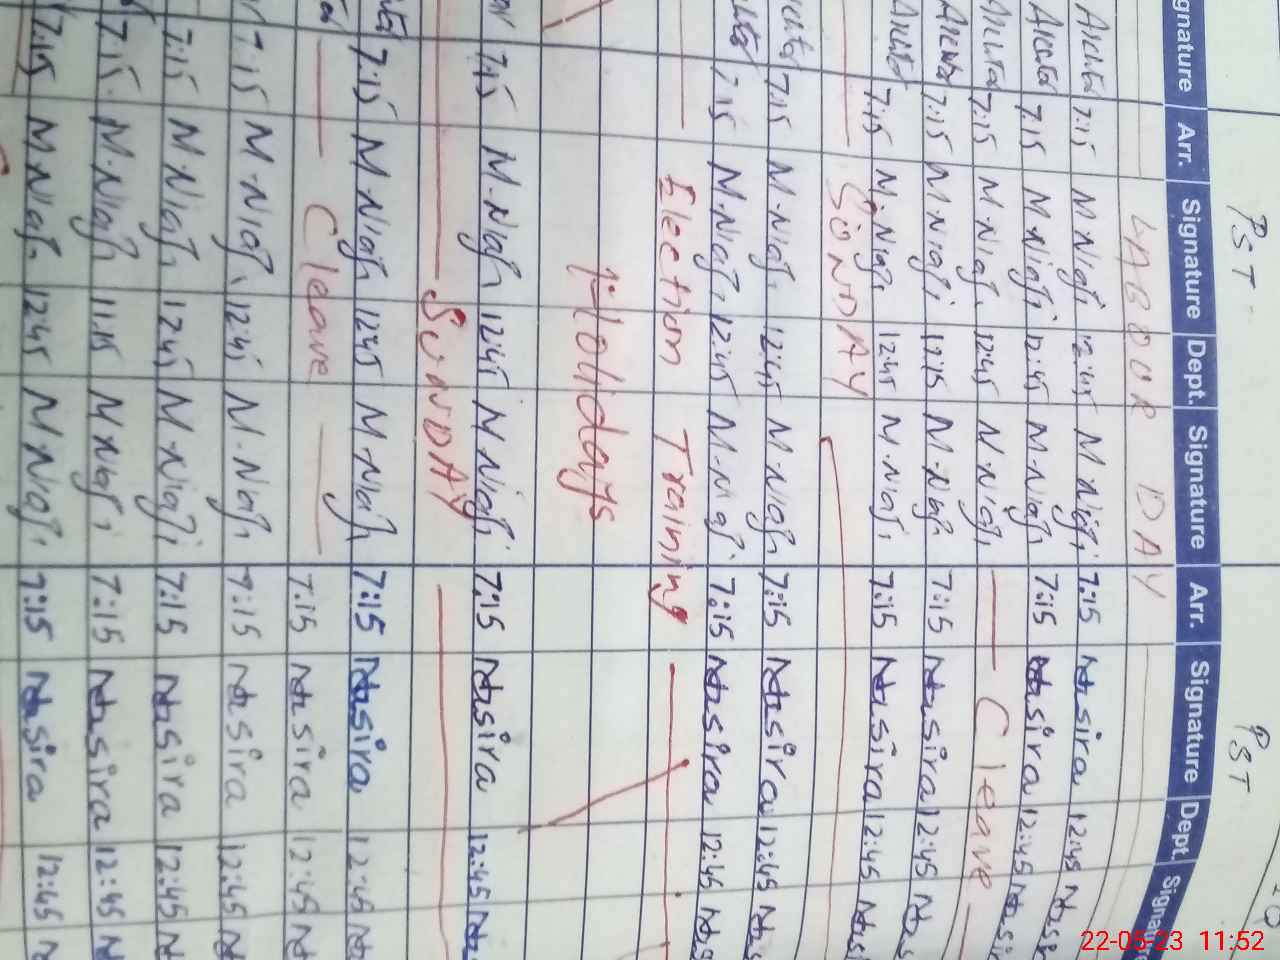 PST PST
gnature Arr. Signature Dept. Signature Arr. Signature Dept. Signatu
LABOUR DAY
7:15 M Niaz 12:45 M Niaz 7:15 Nasira 12:45 Nas
7:15 M Niaz 12:45 M.Niaz 7:15 Nasira 12:45 Nasi
7:15 M.Niaz 12:45 M.Niaz C leave
7:15 M Niaz 12:15 M.Niaz 7:15 Nasira 12:45 Nas
7:15 M.Niaz 12:45 M.Niaz 7:15 Nasira 12:45 Nas
SUNDAY
7:15 M.Niaz 12:45 M.Niaz 7:15 Nasira 12:45 Nas
7:15 M.Niaz 12:45 M.Niaz 7:15 Nasira 12:45 Nas
Election Training
Holidays
7:15 M.Niaz 12:45 M.Niaz 7:15 Nasira 12:45 Na
SUNDAY
7:15 M.Niaz 12:45 M.Niaz 7:15 Nasira 12:45 Na
C leave 7:15 Nasira 12:45 N
7:15 M.Niaz 12:45 M.Niaz 7:15 Nasira 12:45 N
7:15 M.Niaz 12:45 M.Niaz 7:15 Nasira 12:45 N
7:15 M.Niaz 11:15 M.Niaz 7:15 Nasira 12:45 N
7:15 M.Niaz 12:45 M.Niaz 7:15 Nasira 12:45 N
22-05-23 11:52